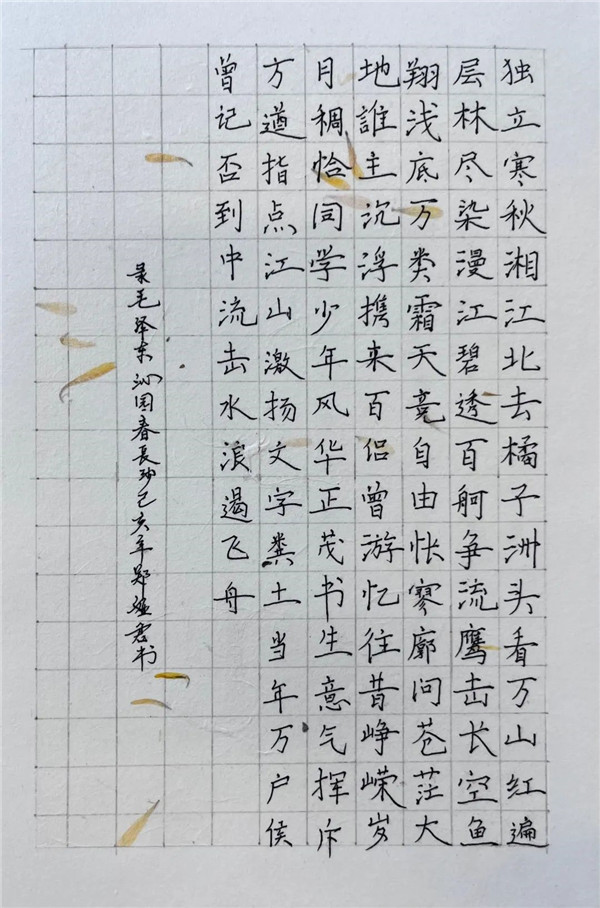 独立寒秋湘江北去橘子洲头看万山红遍
层林尽染漫江碧透百舸争流鹰击长空鱼
翔浅底万类霜天竞自由怅寥廓问苍茫大
地誰主沉浮携来百侣曾游忆往昔峥嵘岁
月稠恰同学少年风华正茂书生意气挥斥
方遒指点江山激扬文字粪土当年万户侯
曾记否到中流击水浪遏飞舟
录毛泽东沁园春長沙己亥年郑君书